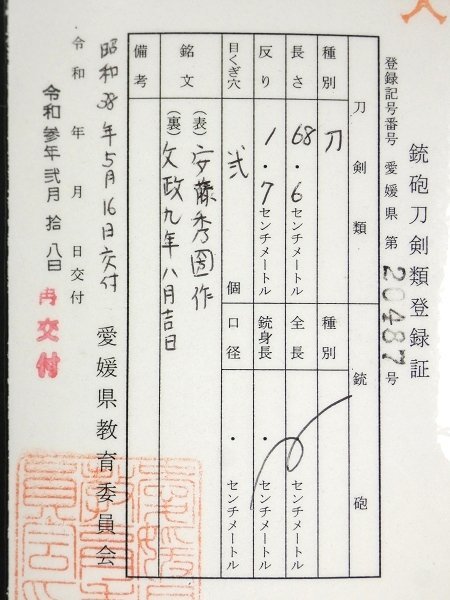 銃砲刀剣類登録証
登録記号番号 愛媛県 第 20487 号
刀剣類 銃砲
種別 刀 種別
長さ 68・6センチメートル 全長 ・センチメートル
反り 1・7センチメートル 銃身長 ・センチメートル
目くぎ穴 弐 個 口径 ・センチメートル
銘文 (表)安藤秀圀作
(裏)文政九年八月吉日
備考
昭和38年5月16日交付 愛媛県教育委員会
令和 年 月 日交付
令和参年弐月拾八日 再交付